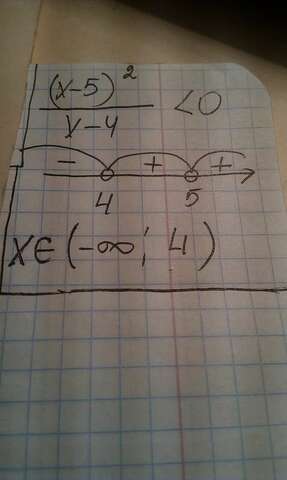 (x-5)²
x-4 <0
- + +
4 5
x∈(-∞; 4)